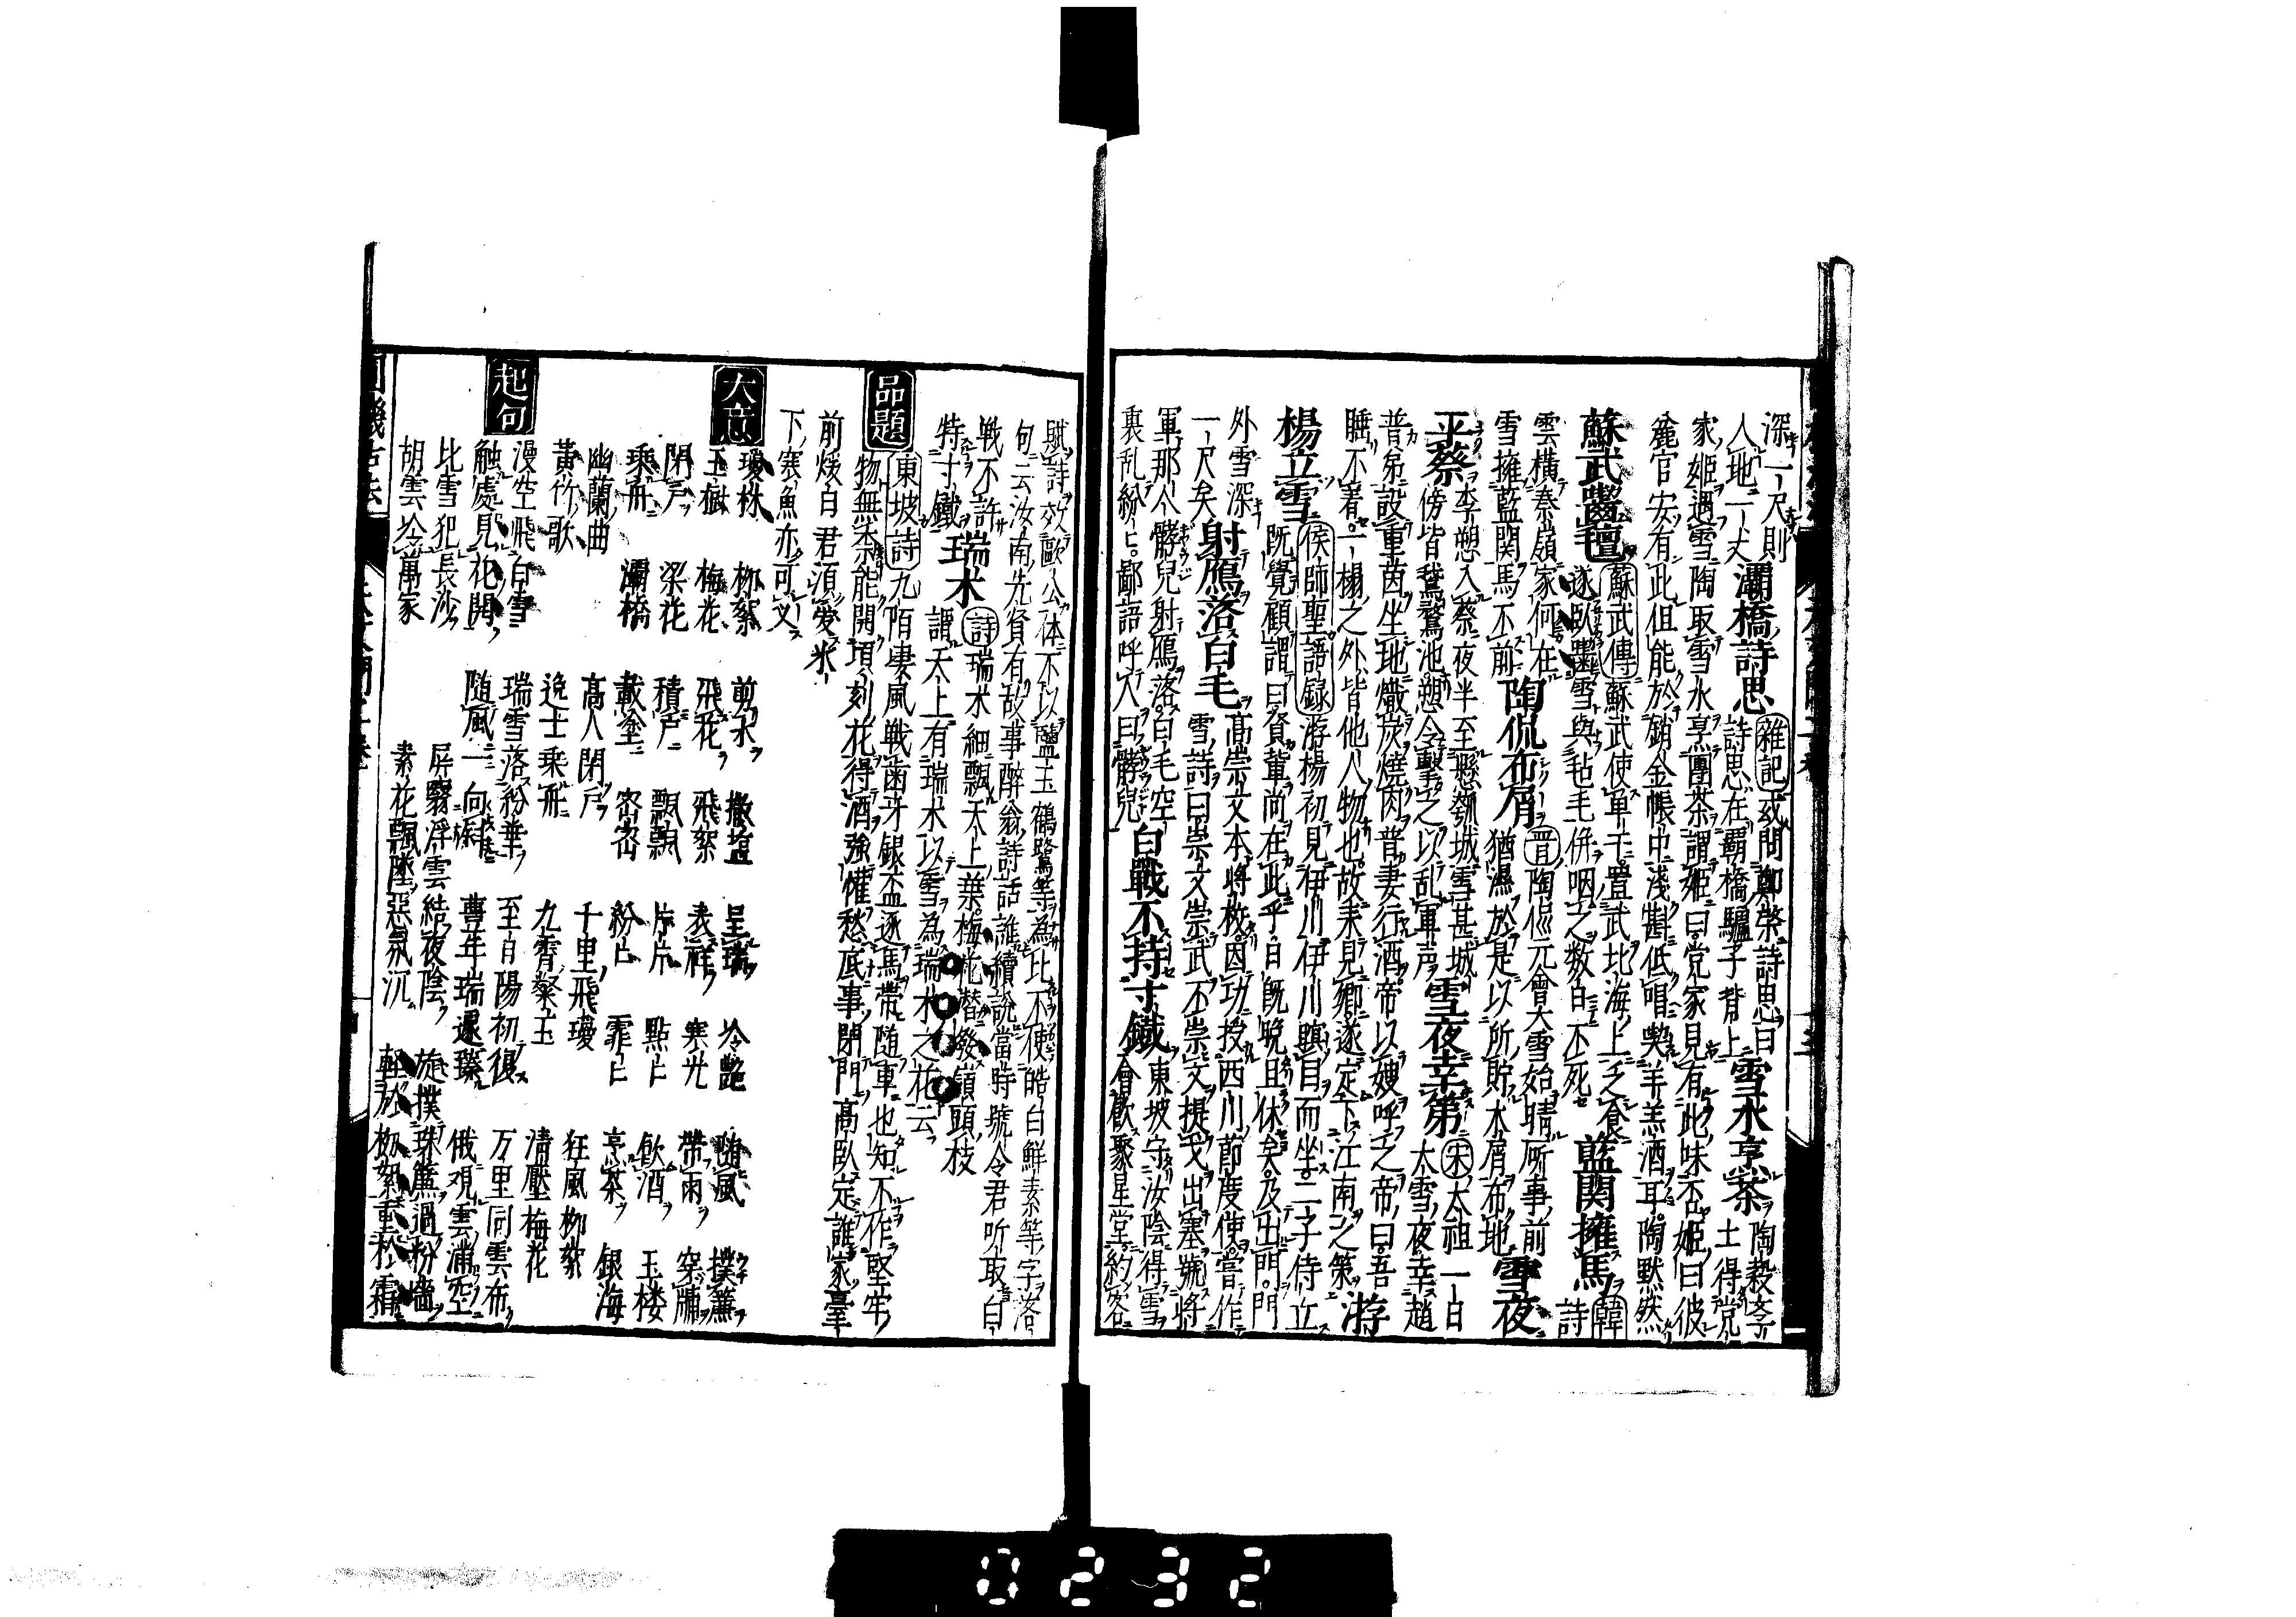 深一尺則
人地一丈
灞橋詩思
雜記或問鄭綮詩思曰
詩思在覇橋驢子背上
雪水烹茶
陶穀李
士得党
家姬遇雪陶取雪水烹團茶謂姬曰党家見有此味否姬曰彼
麁官安有此但能於銷金帳中淺斟低唱喫羊羔酒耳陶默然
蘇武齧氊
蘇武傳蘇武使單于置武北海上乏食
遂臥齧雪与毡毛併咽之数日不死
藍関擁馬
韓詩
雲横秦嶺家何在
雪擁藍関馬不前
陶侃布屑
晋陶侃元會大雪始晴厛事前
猶濕於是以所貯木屑布地
雪夜
平蔡
李愬入蔡夜半至懸瓠城雪甚城
傍皆鵞鶩池愬令擊之以乱軍声
雪夜幸第
宋太祖一日
大雪夜幸趙
普第設重茵坐地熾炭燒肉普妻行酒帝以嫂呼之帝曰吾
睡不着一榻之外皆他人物也故来見卿遂定下江南之策
游
楊立雪
侯師聖語録游楊初見伊川伊川瞋目而坐二子侍立
既覺顧謂曰賢軰尚在此乎日既晚且休矣及出門門
外雪深
一尺矣
射鴈落白毛
高崇文本将校因功授西川節度使嘗作
雪詩曰崇文崇武不崇文提戈出塞號将
軍那人髒兒射鴈落白毛空
裏乱紛紛鄙語呼人曰髒兒
白戰不持寸鐵
東坡守汝陰得雪
會飲聚星堂約客
賦詩效歐公体不以鹽玉鶴鷺等為比不使皓白鮮素等字落
句云汝南先賢有故事醉翁詩話誰續説當時號令君听取白
戦不許
持寸鐵
瑞木
詩瑞木細飄天上葉梅花潜撥嶺頭枝
謂天上有瑞木以雪為瑞木之花云
品題
東坡詩九陌凄風戦歯牙銀盃逐馬帶随車也知不作堅牢
物無柰能開頃刻花得酒強懽愁底事閉門高臥定誰家臺
前煖白君須愛氷
下寒魚亦可叉
大意
瓊林　柳絮　剪水　撒塩　呈瑞　冷艶　随風　撲簾
玉樹　梅花　飛花　飛絮　表祥　寒光　帶雨　穿牖
閉戸　梁花　積戸　飄飄　片片　點點　飲酒　玉楼
乗舟　灞橋　載塗　密密　紛紛　霏霏　烹茶　銀海
幽蘭曲　高人閉戸　千里飛瓊　狂風柳絮
黄竹歌　逸士乗舟　九霄粲玉　清壓梅花
起句
漫空飛白雪　瑞雪落紛華　至日陽初復　万里同雲布
触處見花開　随風一向斜　豊年瑞還臻　俄覌雲浦空
比雪犯長沙　屏翳浮雲結夜陰　旋撲珠簾過粉墻
胡雲冷萬家　素花飄墜惡氛沉　軽於柳絮重於霜
0232